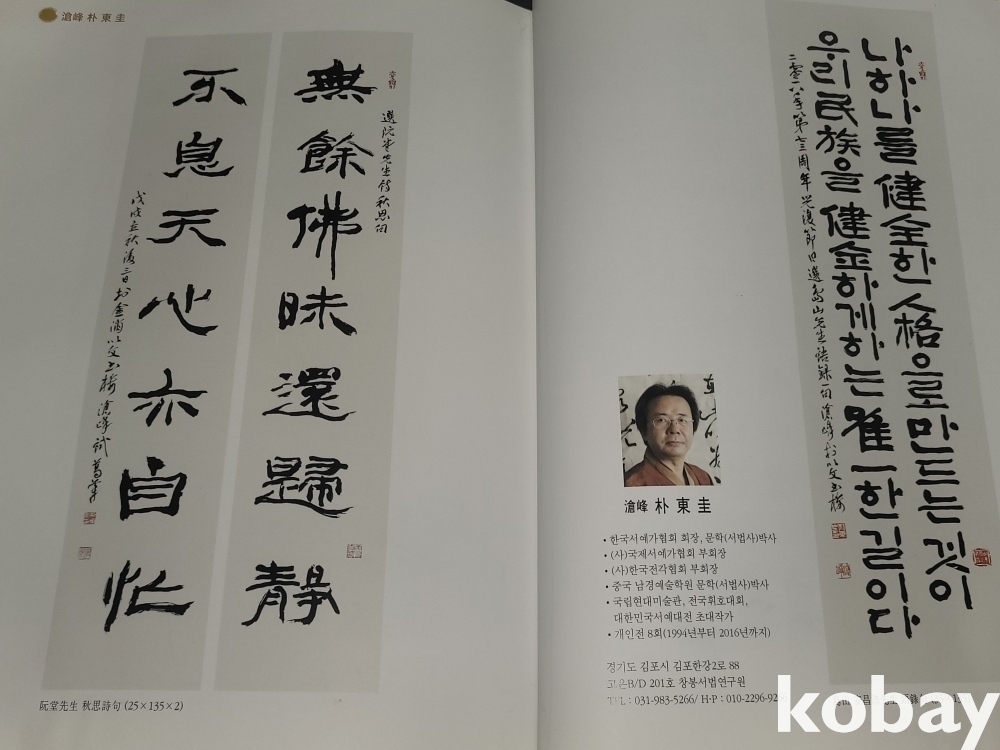 滄峰 朴東圭
無餘佛昧還歸靜
不息天心亦自忙
阮堂先生 秋思詩句 (25×135×2)
나 하나를 健全한 人格으로 만드는 것이
우리 民族을 健全하게 하는 唯一한 길이다
滄峰 朴東圭
• 한국서예가협회 회장, 문학(서법사)박사
• (사)국제서예가협회 부회장
• (사)한국전각협회 부회장
• 중국 남경예술학원 문학(서법사)박사
• 국립현대미술관, 전국휘호대회,
대한민국서예대전 초대작가
• 개인전 8회(1994년부터 2016년까지)
경기도 김포시 김포한강2로 88
고은B/D 201호 창봉서법연구원
TEL : 031-983-5266/ H·P : 010-2296-92
kobay